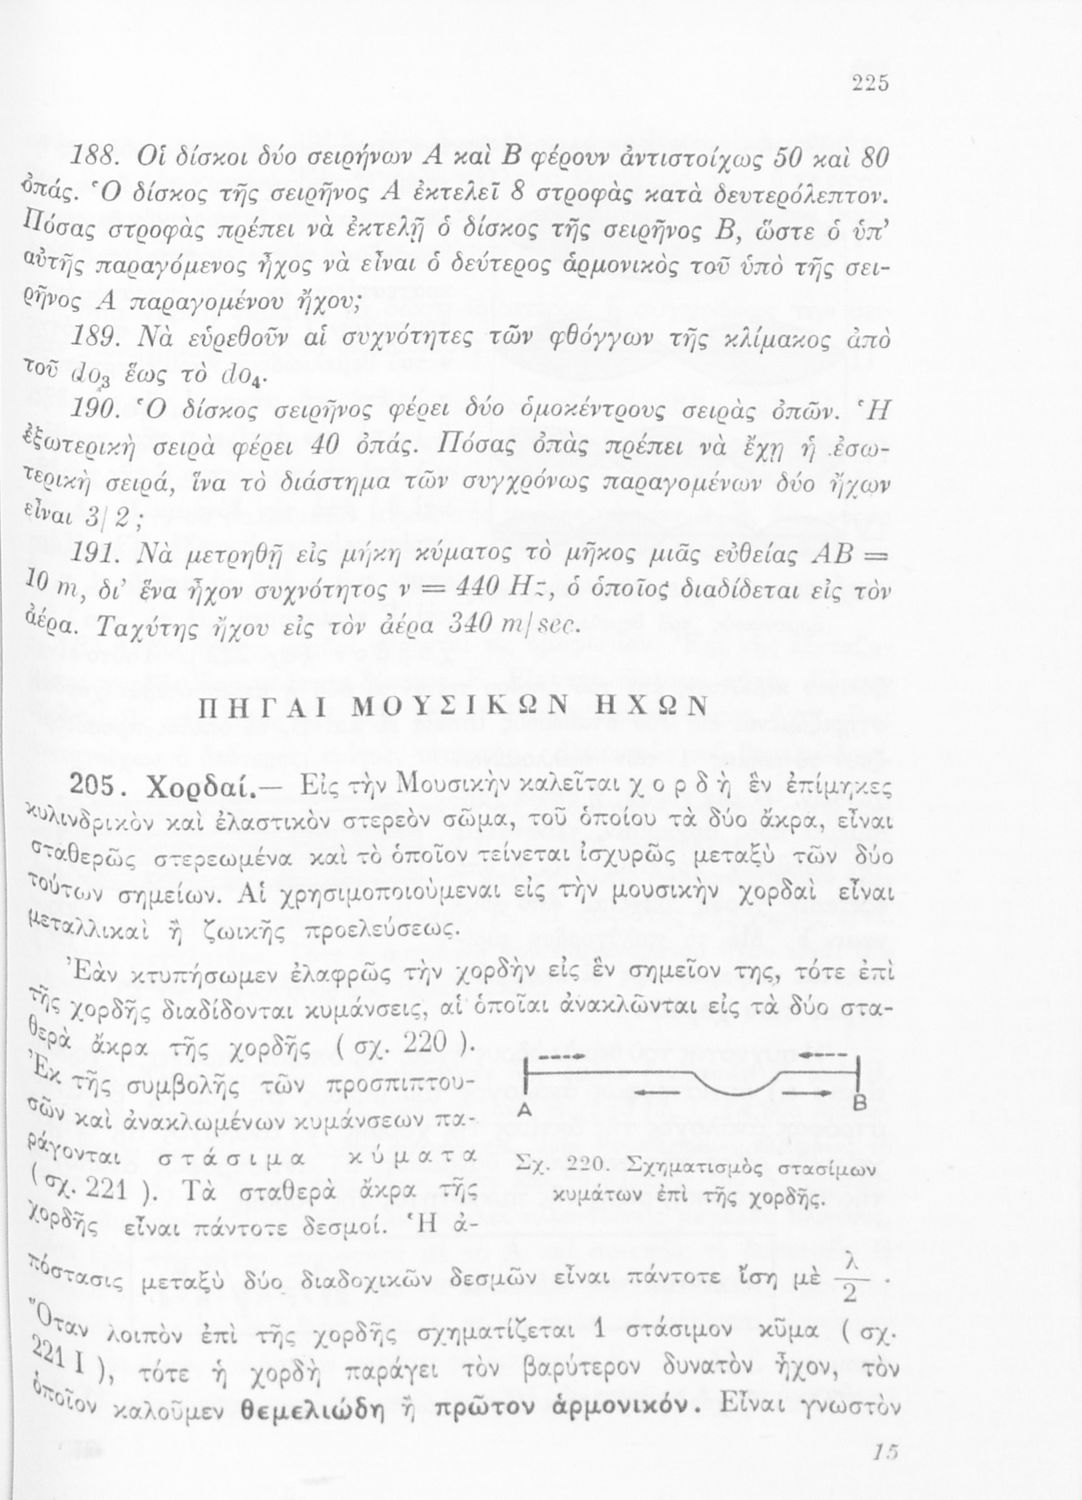 225
188. Οἱ δίσκοι δύο σειρήνων Α καὶ Β φέρουν ἀντιστοίχως 50 καὶ 80
ὀπάς. Ὁ δίσκος τῆς σειρῆνος Α ἐκτελεῖ 8 στροφὰς κατὰ δευτερόλεπτον.
Πόσας στροφὰς πρέπει νὰ ἐκτελῇ ὁ δίσκος τῆς σειρῆνος Β, ὥστε ὁ ὑπ’
αὐτῆς παραγόμενος ἦχος νὰ εἶναι ὁ δεύτερος ἁρμονικὸς τοῦ ὑπὸ τῆς σει-
ρῆνος Α παραγομένου ἤχου;
189. Νὰ εὑρεθοῦν αἱ συχνότητες τῶν φθόγγων τῆς κλίμακος ἀπὸ
τοῦ do₃ ἕως τὸ do₄.
190. Ὁ δίσκος σειρῆνος φέρει δύο ὁμοκέντρους σειρὰς ὀπῶν. Ἡ
ἐξωτερικὴ σειρὰ φέρει 40 ὀπάς. Πόσας ὀπὰς πρέπει νὰ ἔχῃ ἡ ἐσω-
τερικὴ σειρά, ἵνα τὸ διάστημα τῶν συγχρόνως παραγομένων δύο ἤχων
εἶναι 3/2 ;
191. Νὰ μετρηθῇ εἰς μήκη κύματος τὸ μῆκος μιᾶς εὐθείας ΑΒ =
10 m, δι’ ἕνα ἦχον συχνότητος ν = 440 Hz, ὁ ὁποῖος διαδίδεται εἰς τὸν
ἀέρα. Ταχύτης ἤχου εἰς τὸν ἀέρα 340 m/sec.
ΠΗΓΑΙ ΜΟΥΣΙΚΩΝ ΗΧΩΝ
205. Χορδαί.— Εἰς τὴν Μουσικὴν καλεῖται χορδὴ ἓν ἐπίμηκες
κυλινδρικὸν καὶ ἐλαστικὸν στερεὸν σῶμα, τοῦ ὁποίου τὰ δύο ἄκρα, εἶναι
σταθερῶς στερεωμένα καὶ τὸ ὁποῖον τείνεται ἰσχυρῶς μεταξὺ τῶν δύο
τούτων σημείων. Αἱ χρησιμοποιούμεναι εἰς τὴν μουσικὴν χορδαὶ εἶναι
μεταλλικαὶ ἢ ζωικῆς προελεύσεως.
Ἐὰν κτυπήσωμεν ἐλαφρῶς τὴν χορδὴν εἰς ἓν σημεῖον της, τότε ἐπὶ
τῆς χορδῆς διαδίδονται κυμάνσεις, αἱ ὁποῖαι ἀνακλῶνται εἰς τὰ δύο στα-
θερὰ ἄκρα τῆς χορδῆς ( σχ. 220 ).
Ἐκ τῆς συμβολῆς τῶν προσπιπτου-
σῶν καὶ ἀνακλωμένων κυμάνσεων πα-
ράγονται στάσιμα κύματα
( σχ. 221 ). Τὰ σταθερὰ ἄκρα τῆς
χορδῆς εἶναι πάντοτε δεσμοί. Ἡ ἀ-
A B
Σχ. 220. Σχηματισμὸς στασίμων
κυμάτων ἐπὶ τῆς χορδῆς.
πόστασις μεταξὺ δύο διαδοχικῶν δεσμῶν εἶναι πάντοτε ἴση μὲ λ/2 .
Ὅταν λοιπὸν ἐπὶ τῆς χορδῆς σχηματίζεται 1 στάσιμον κῦμα ( σχ.
221 I ), τότε ἡ χορδὴ παράγει τὸν βαρύτερον δυνατὸν ἦχον, τὸν
ὁποῖον καλοῦμεν θεμελιώδη ἢ πρῶτον ἁρμονικόν. Εἶναι γνωστὸν
15